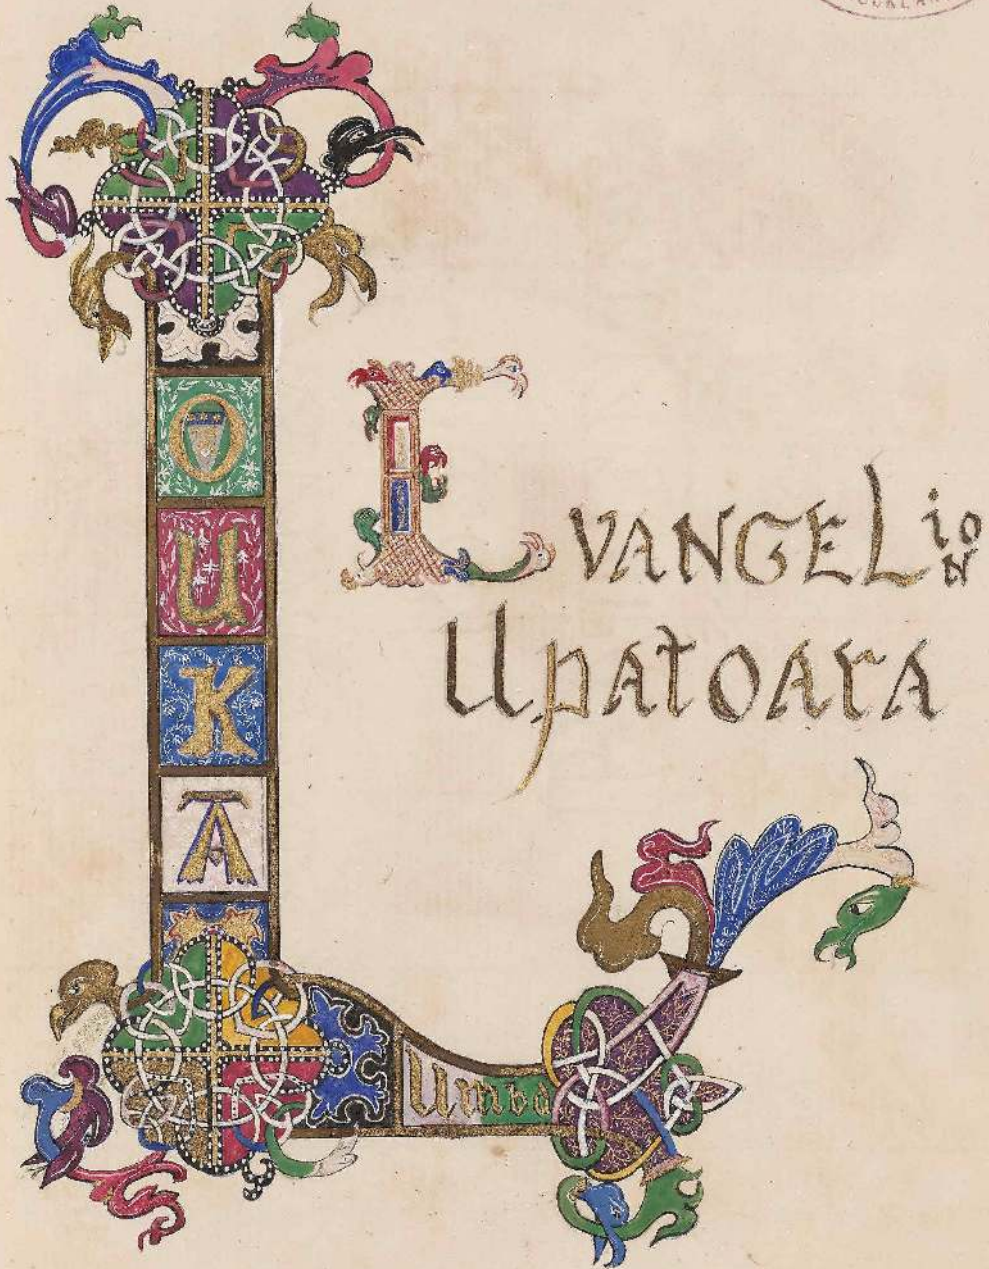 LOUKA
EVANGELioN
Upatoara